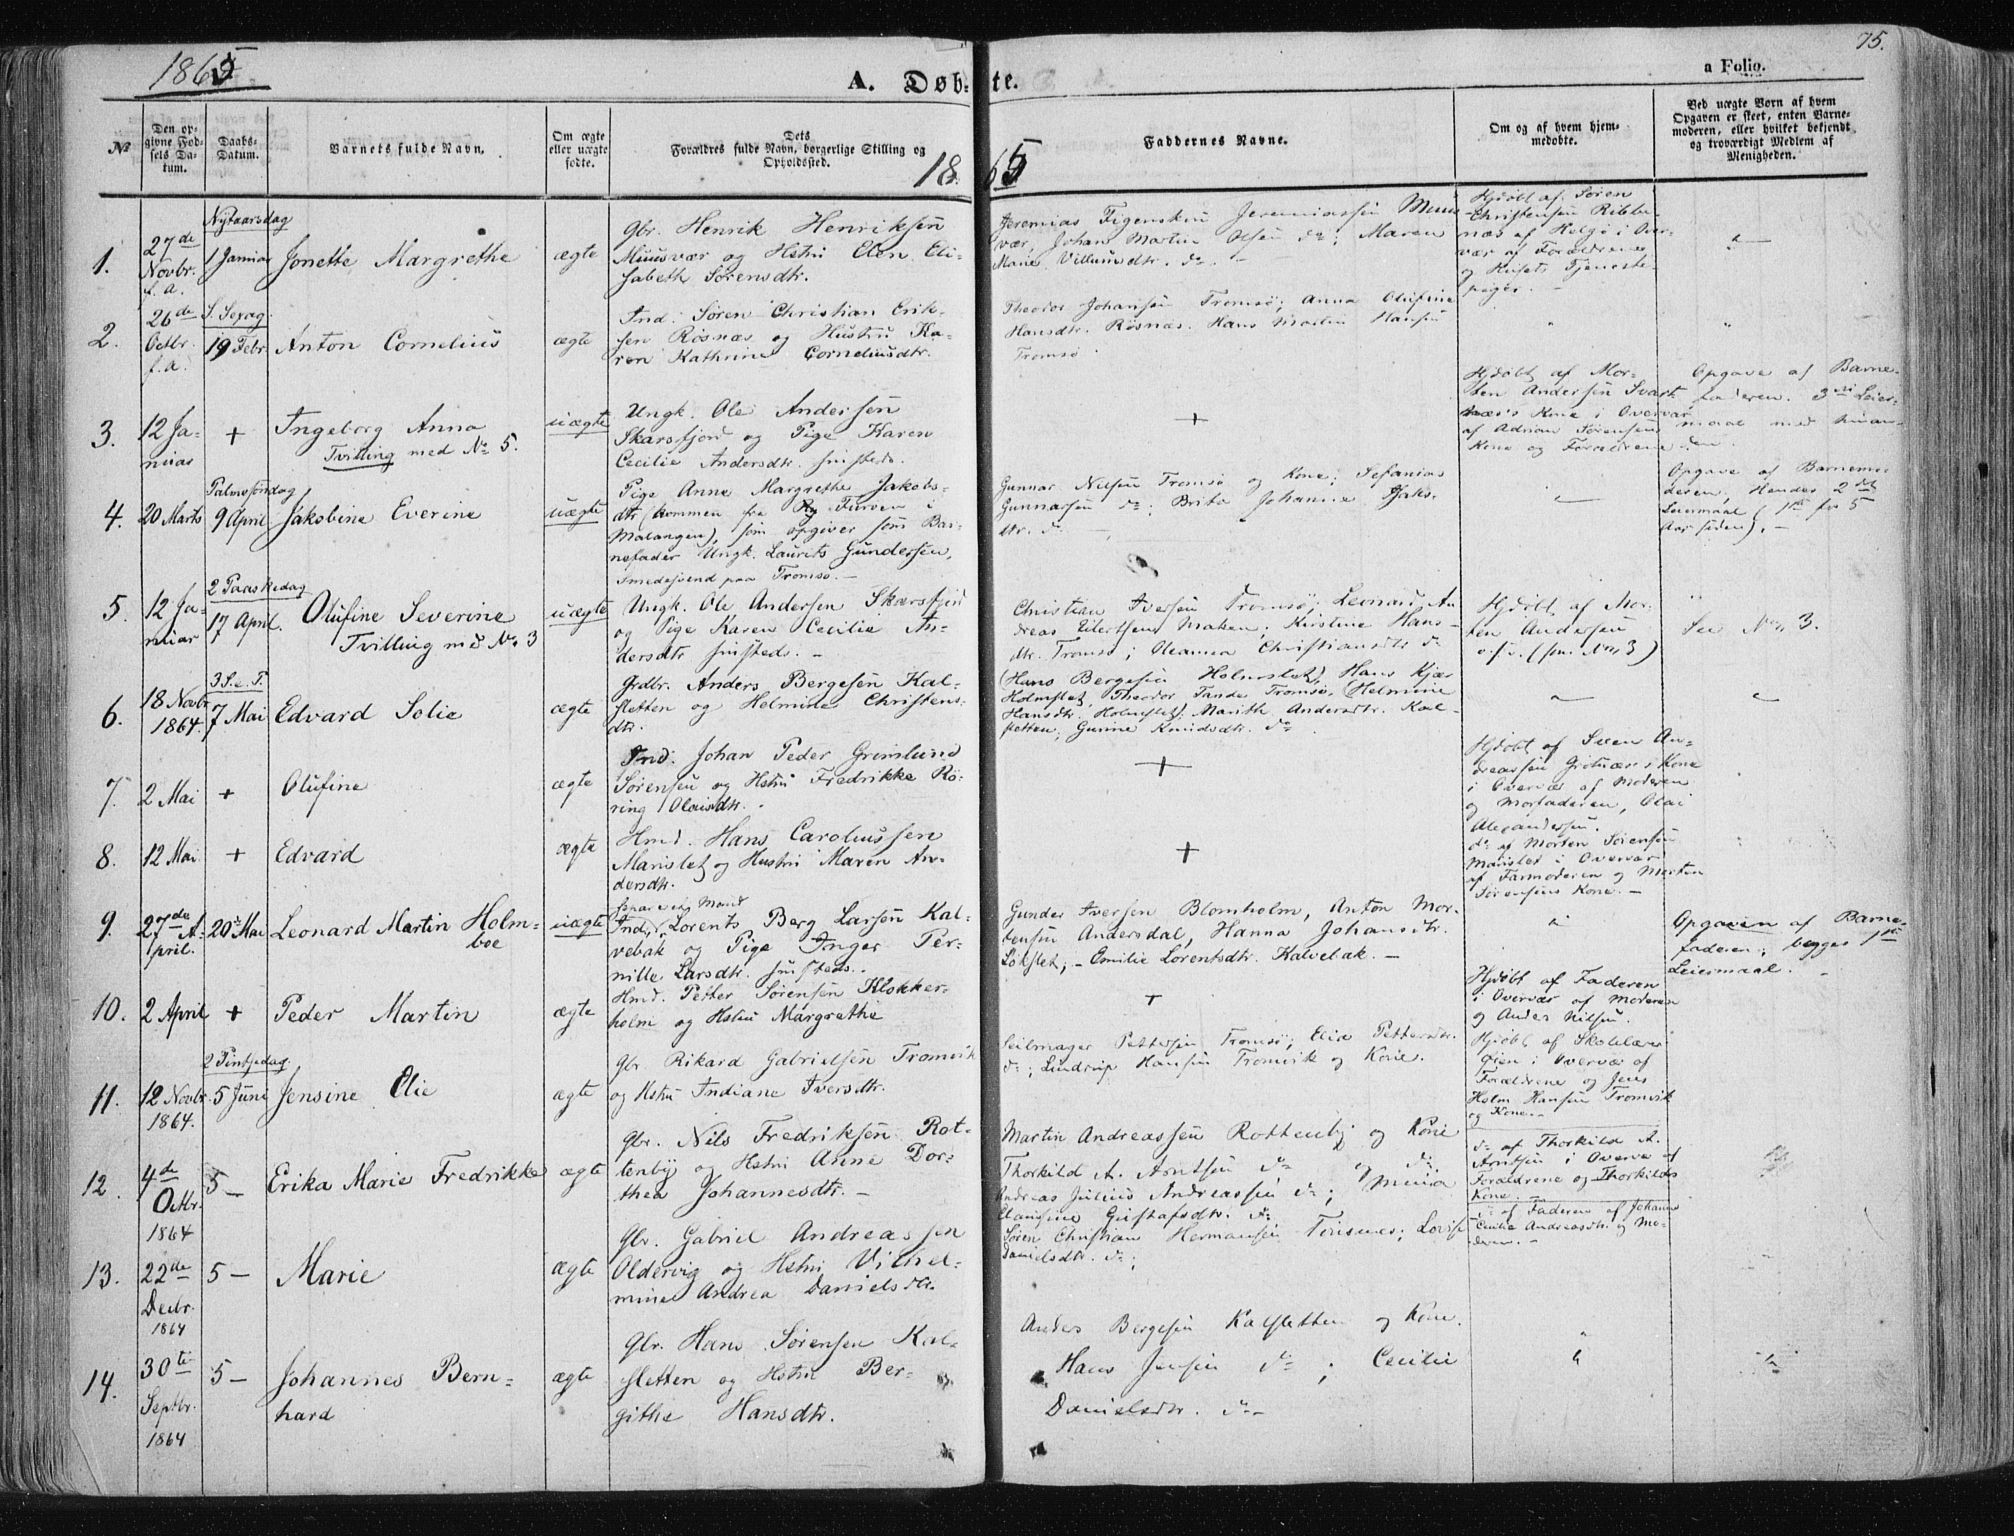 1865
75.
A. Døb-
te.
a Folio.
1865
No
Den opgivne Fødsels Datum.
Daabs-Datum.
Barnets fulde Navn.
Om ægte eller uægte fødte.
Dets Forældres fulde Navn, borgerlige Stilling og Opholdssted.
Faddernes Navne.
Om og af hvem hjemmedøbte.
Ved uægte Børn af hvem Opgaven er skeet, enten Barnemoderen, eller hvilket bekjendt og troværdigt Medlem af Menigheden.
1.
27de
Novbr.
f. a.
Nytaarsdag
1 Januar
Jonette Margrethe
ægte
Gbr. Henrik Henriksen
Muusvær og Hstru Elen Eli-
sabeth Sørensdtr.
Jeremias Figenskou Jeremiassen Muus-
vær, Johan Martin Olsen do; Maren
Marie Villumsdtr. do. -
Hjdøbt af Søren
Christensen Ribbe-
næs af Helgø i Over-
vær af Forældrene
og Husets Tjeneste-
piger. -
2.
26de
Octbr.
f. a.
S. Sexag.
19 Febr.
Anton Cornelius
ægte
Ind. Søren Christian Erik-
sen Røsnæs og Hustru Ka-
ren Kathrine Corneliusdtr.
Theodor Johansen Tromsø; Anna Olufine
Hansdtr. Røsnæs. Hans Martin Hansen
Tromsø
3.
12 Ja-
nuar
+
Ingeborg Anna
Tvilling med No 5.
uægte
Ungk. Ole Andersen
Skarsfjord og Pige Karen
Cecilie Andersdtr. sisteds.
+
Hjdøbt af Mor-
ten Andersen Svart-
næs's Kone i Overvær
af Adrian Sørensens
Kone og Forældrene.
Opgave af Barne-
faderen. 3die Leier-
maal med hinan-
den.
4.
20 Marts
Palmesøndag
9 April
Jakobine Everine
uægte
Pige Anne Margrethe Jakobs-
dtr (kommen fra Furøen i
Malangen), som opgiver som Bar-
nefader Ungk. Laurits Gundersen,
Smedesvend paa Tromsø. -
Gunnar Nilsen Tromsø og Kone; Sefanias
Gunnarsen do; Brita Johanne Isaks-
dtr. do -
Opgave af Barnemo-
deren, Hendes 2det
Leiermaal (1ste for 5
Aar siden). -
5.
12 Ja-
nuar
2 Paaskedag
17 April.
Olufine Severine
Tvilling med No 3
uægte
Ungk. Ole Andersen Skarsfjord
og Pige Karen Cecilie An-
dersdtr sisteds. -
Christian Iversen Tromsø; Leonard An-
dreas Eilertsen Maken; Kirstine Hans-
dtr. Tromsø; Oleanna Christiansdtr do
Hjdøbt af Mor-
ten Andersen
o.s.v. (sm. No 3)
See No 3.
6.
18 Novbr
1864.
3 S. e. P.
7 Mai
Edvard Solie
ægte
Grdbr. Anders Bergesen Kal-
sletten og Helmine Christens-
dtr.
(Hans Bergesen Holmslet), Hans Kjær
Holmslet, Theodor Tande Tromsø, (Helmine
Hansdtr. Holmslet); Marith Andersdtr. Kal-
sletten; Gurine Knudsdtr. do
7.
2 Mai
+
Olufine
ægte
Ind. Johan Peder Grønlund
Sørensen og Hstru Fredrikke Rø-
ring Olaisdtr.
+
Hjdøbt af Sven An-
dreassen Grøtnæs's Kone
i Overvær af Moderen
og Morfaderen, Olai
Alexandersen.
8.
12 Mai
+
Edvard
ægte
Hmd. Hans Caroliussen
Marislet og Hustru Maren An-
dersdtr.
+
do af Morten Sørensen
Marislet i Overvær
af Farmoderen og Morten
Sørensens Kone. -
9.
27de A-
pril.
20de Mai
Leonard Martin Holm-
boe
uægte
Ind. Lorents Berg Larsen Kal-
vebak og Pige Inger Per-
nille Larsdtr. sisteds.
Gunder Iversen Blomholm, Anton Mor-
tensen Andersdal, Hanna Johansdtr.
Løkslet; - Emilie Lorentsdtr. Kalvebak. -
Opgaven af Barne-
faderen; begges 1ste
Leiermaal. -
10.
2 April
+
Peder Martin
ægte
Hmd. Petter Sørensen Klokker-
holm og Hstru Margrethe
+
Hjdøbt af Faderen
i Overvær af Moderen
og Anders Nilsen.
11.
12 Novbr.
1864.
2 Pintsedag.
5 Juni
Jensine Elie
ægte
Gbr. Rikard Gabrielsen Tromvik
og Hstru Indiane Iversdtr.
Seilmager Pettersen Tromsø; Elia Pettersdtr.
do; Lindrup Hansen Tromvik og Kone.
Hjdøbt af Skolelærer
Øien i Overvær af
Forældrene og Jens
Holm Hansen Tromvik
og Kone. -
12.
4de
Octbr.
1864
5 -
Erika Marie Fredrikke
ægte
Gbr. Nils Fredriksen Rot-
tenby og Hstru Anne Dor-
thea Johannesdtr. -
Martin Andreassen Rottenby og Kone
Thorkild A. Arntsen do og do.
Andreas Julius Andreassen do;
Clausine Gustafsdtr. do
do af Thorkild A.
Arntsen i Overvær af
Forældrene og Thorkilds
Kone. -
13.
22de
Decbr.
1864
5 -
Marie
ægte
Gbr. Gabriel Andreassen
Oldervig og Hstru Vilhel-
mine Andrea Danielsdtr.
Søren Christian Hermansen Finsnes; Lovise
Danielsdtr. do;
do af Faderen af Johanna
Cecilie Andreasdtr. og Mo-
deren. -
14.
30te
Septbr.
1864
5 -
Johannes Bern-
hard
ægte
Gbr. Hans Sørensen Kal-
sletten og Hstru Ber-
githe Hansdtr.
Anders Bergesen Kalsletten og Kone.
Hans Jensen do; Cecilie
Danielsdtr. do -